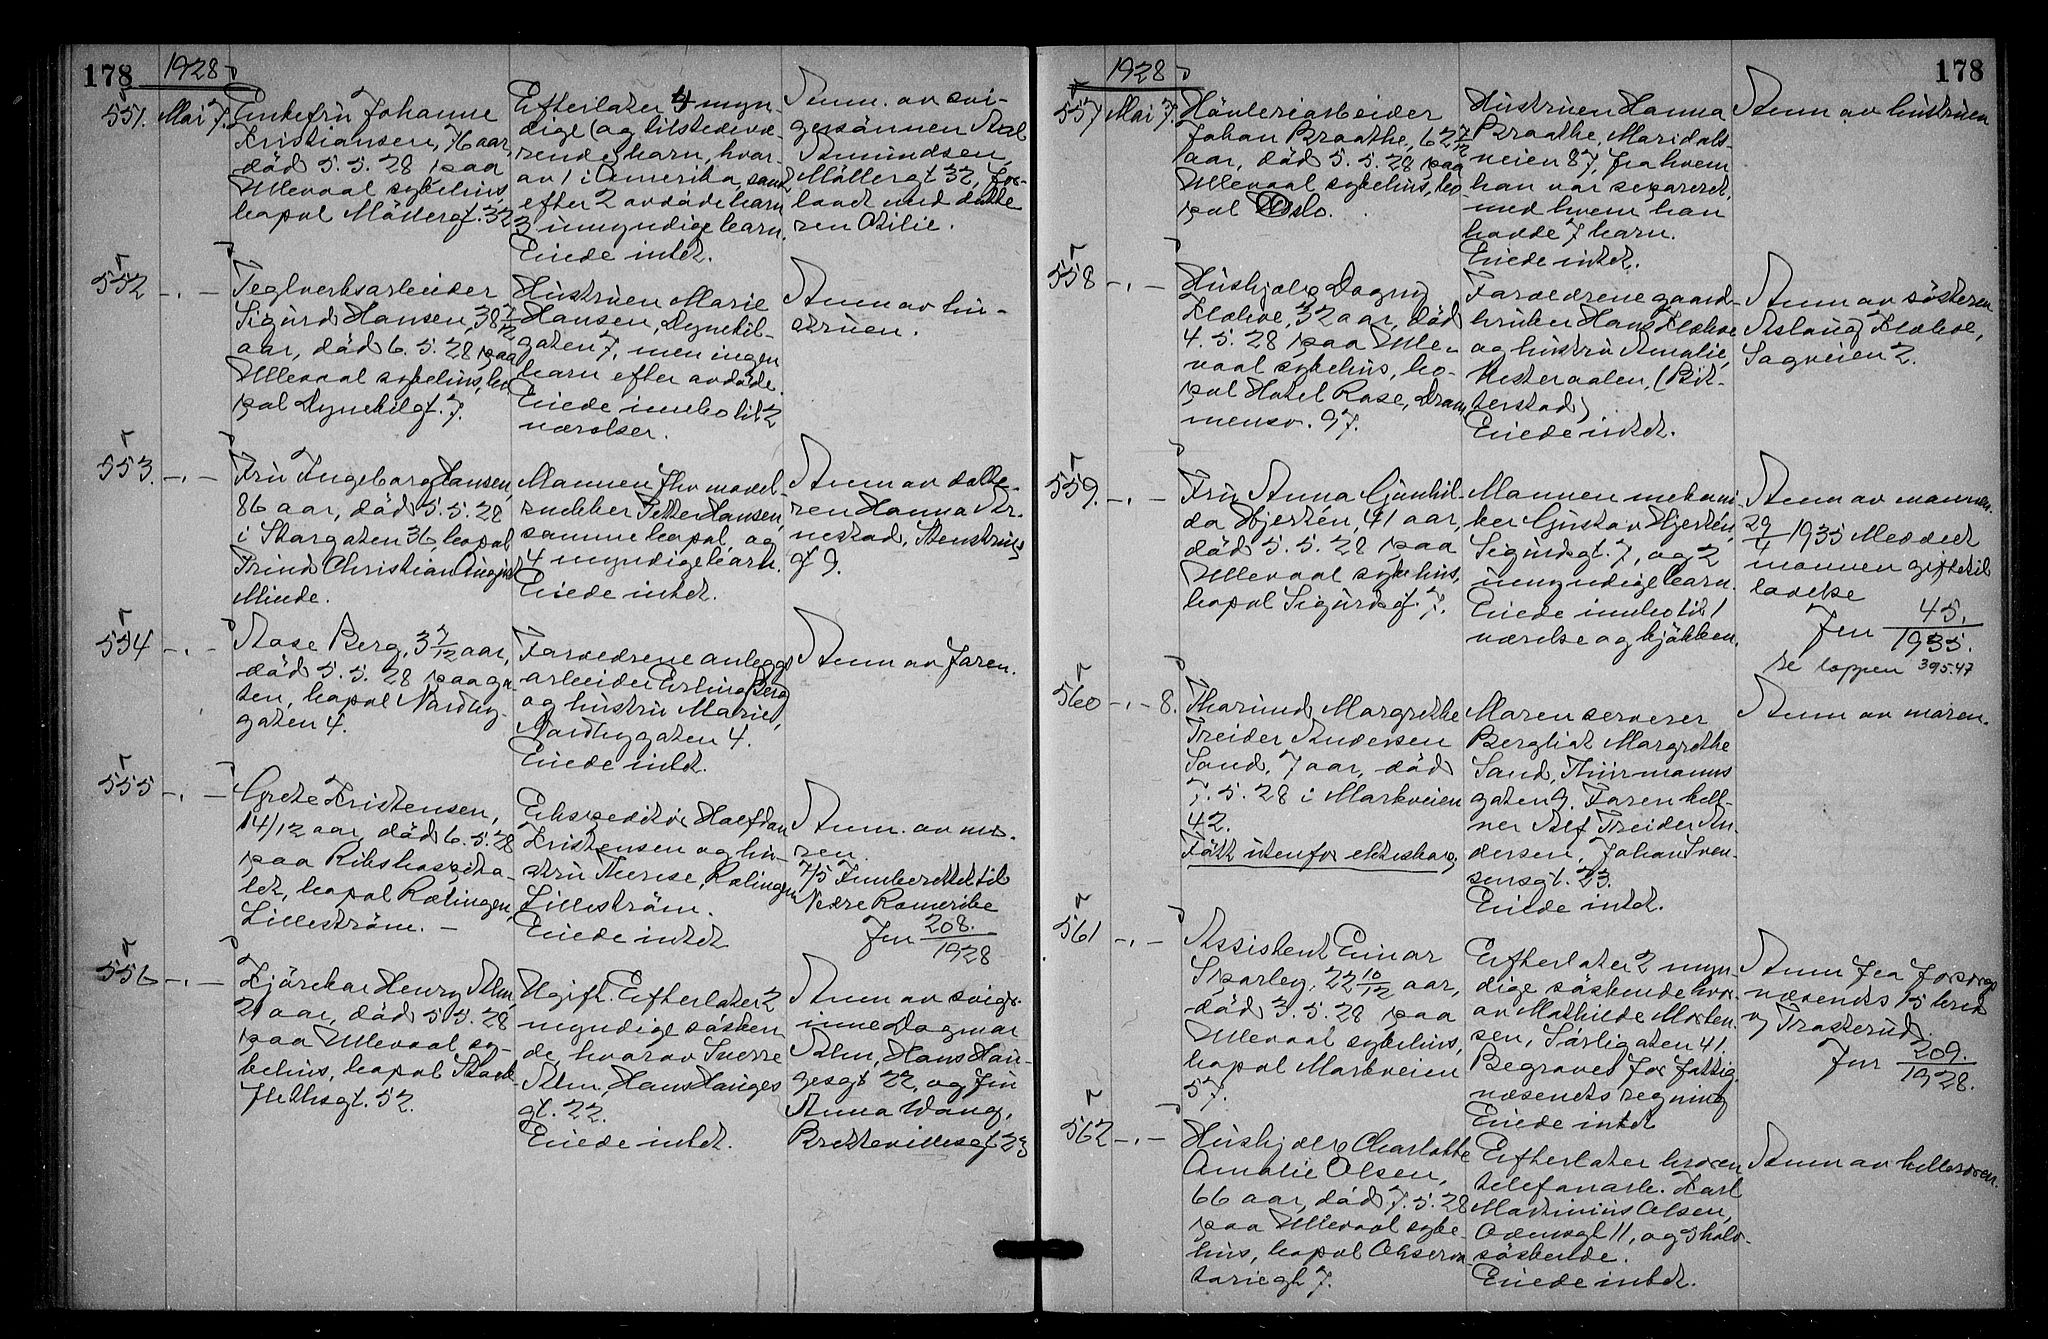 178 1928
551. Mai 7. Enkefru Johanne
Kristiansen, 76 aar,
død 5.5.28 paa
Ullevaal sykehus,
bopæl Møllergt. 32
Efterlater 4 myn-
dige (og tilstedevæ-
rende) barn, hvor-
av 1 i Amerika, samt
efter 2 avdøde barn
3 umyndige barn.
Eiede intet.
Anm. av svi-
gersønnen
Amundsen,
Møllergt 32, for-
lovet med datte
ren Otilie.
552 -.- Teglverksarbeider
Sigurd Hansen, 38 7/12
aar, død 6.5.28 paa
Ullevaal sykehus, bo
pæl Dynekilgt. 7.
Hustruen Marie
Hansen, Dynekil-
gaten 7, men ingen
barn efter avdøde.
Eiede innbo til 2
værelser.
Anm av hu-
struen.
553. -.- Fru Ingeborg Hansen,
86 aar, død 5.5.28
i Storgaten 36, bopæl
Prinds Christian Augusts
Minde.
Mannen fhv model-
snekker Petter Hansen,
samme bopæl, og
4 myndige barn.
Eiede intet.
Anm av datte-
ren Hanna Ar-
nestad, Stenstrups
gt 9.
554 -.- Aase Berg, 3 7/12 aar,
død 5.5.28 paa ga-
ten, bopæl Nordby-
gaten 4.
Forældrene anleggs
arbeider Erling Berg
og hustru Marie,
Nordbygaten 4.
Eiede intet.
Anm av faren.
555 -.- Grete Kristensen,
14/12 aar, død 6.5.28
paa Rikshospita-
let, bopæl Rælingen,
Lillestrøm. -
Ekspeditør Halfdan
Kristensen og hu-
stru Therese, Rælingen
Lillestrøm.
Eiede intet
Anm. av mo-
ren.
7/5 Innberettet til
Nedre Romerike
Jnr 208.
1928
556 -.- Kjørekar Henry Alm,
21 aar, død 5.5.28
paa Ullevaal sy-
kehus, bopæl
gt. 52.
Ugift. Efterlater 2
myndige søsken
de, hvorav Sverre
Alm, Hans Hauges
gt. 22.
Eiede intet.
Anm av sviger-
inne Dagmar
Alm, Hans Hau-
gesgt 22, og fru
Anna Wang,
Brettevillesgt 23
1928 178
557 Mai 7. Høvleriarbeider
Johan Braathe, 62 7/12
aar, død 5.5.28 paa
Ullevaal sykehus, bo
pæl Oslo.
Hustruen Hanna
Braathe, Maridals-
veien 87, fra hvem
han var separeret,
med hvem han
havde 7 barn.
Eiede intet.
Anm av hustruen
558 -.- Hushjælp Dagny
32 aar, død
4.5.28 paa Ulle-
vaal sykehus, bo-
pæl Hotel Rose, Dram
mensv. 97.
Forældrene gaard-
bruker Hans
og hustru Amalie,
Vesteraalen, (Bit-
terstad)
Eiede intet.
Anm av søsteren
Aslaug
Sagveien 2.
559. -.- Fru Anna Gunhil-
da Hjertén, 41 aar,
død 5.5.28 paa
Ullevaal sykehus,
bopæl Sigurdsgt. 7.
Mannen mekani-
ker Gustav Hjertén,
Sigurdsgt. 7, og 2
umyndige barn.
Eiede innbo til 1
værelse og kjøkken.
Anm av mannen.
29/4 1935 Meddelt
mannen giftetil
latelse
Jnr 45.
1935.
se mappen 395.47
560 -.- 8. Thorunds Margrethe
Treider Andersen
Sand, 7 aar, død
7.5.28 i Markveien
42.
Født utenfor ekteskap.
Moren servører
Bergliot Margrethe
Sand, Thurmanns
gaten 9. Faren kell-
ner Alf Treider An-
dersen, Johan Sven-
sensgt. 23.
Eiede intet.
Anm av moren.
561 -.- Assistent Einar
Sparley, 22 10/12 aar,
død 3.5.28 paa
Ullevaal sykehus,
bopæl Markveien
57.
Efterlater 2 myn-
dige søskende hvor-
av Mathilde Morten-
sen, Sørligaten 41.
Begraves for fattig
væsenets regning
Eiede intet
Anm fra forsorgs
væsenets 15 kred
v/ Trosterud.
Jnr 209.
1928.
562 -.- Hushjælp Charlotte
Amalie Olsen,
66 aar, død 7.5.28
paa Ullevaal syke-
hus, bopæl Observa
toriegt 7.
Efterlater broren
telefonarb. Karl
Martinius Olsen,
Odensgt 11, og 3 halv-
søskende.
Eiede intet.
Anm av